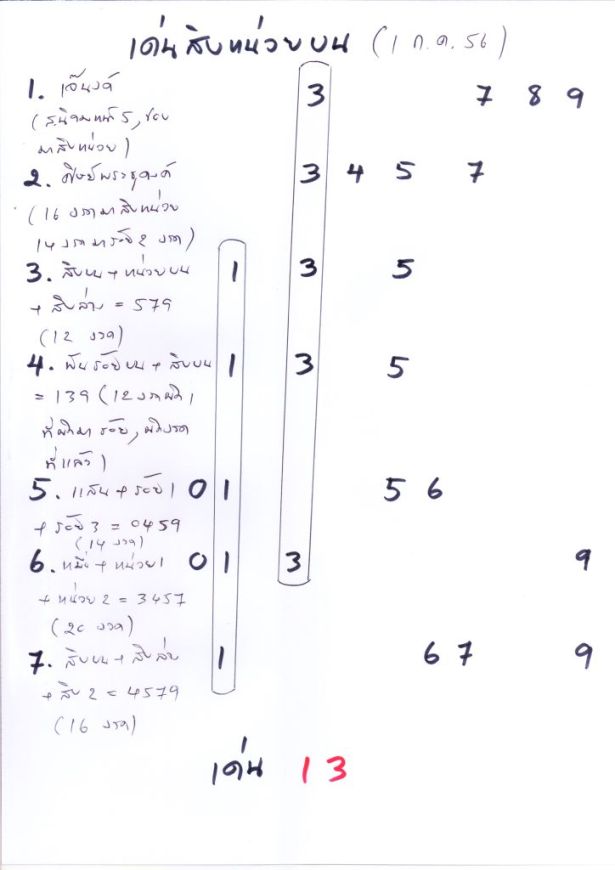 เด่นสิบหน่วยบน (1 ก.ค. 56)
1. เจ๊นงค์ 3 7 8 9
(ส.นิคมทนั 5, ชอบ
มาสิบหน่วย)
2. ศิษย์พระธุดงค์ 3 4 5 7
(16 งวดมาสิบหน่วย
14 งวดมาร้อย 2 งวด)
3. สิบบน + หน่วยบน 1 3 5
+ สิบล่าง = 579
(12 งวด)
4. พันร้อยบน + สิบบน 1 3 5
= 139 (12 งวดผิด 1
ที่ผิดมาร้อย, ผิดงวด
ที่แล้ว)
5. แสน + ร้อย 1 0 1 5 6
+ ร้อย 3 = 0459
(14 งวด)
6. หมื่น + หน่วย 1 0 1 3 9
+ หน่วย 2 = 3457
(20 งวด)
7. สิบบน + สิบล่าง 1 6 7 9
+ สิบ 2 = 4579
(16 งวด)
เด่น 1 3